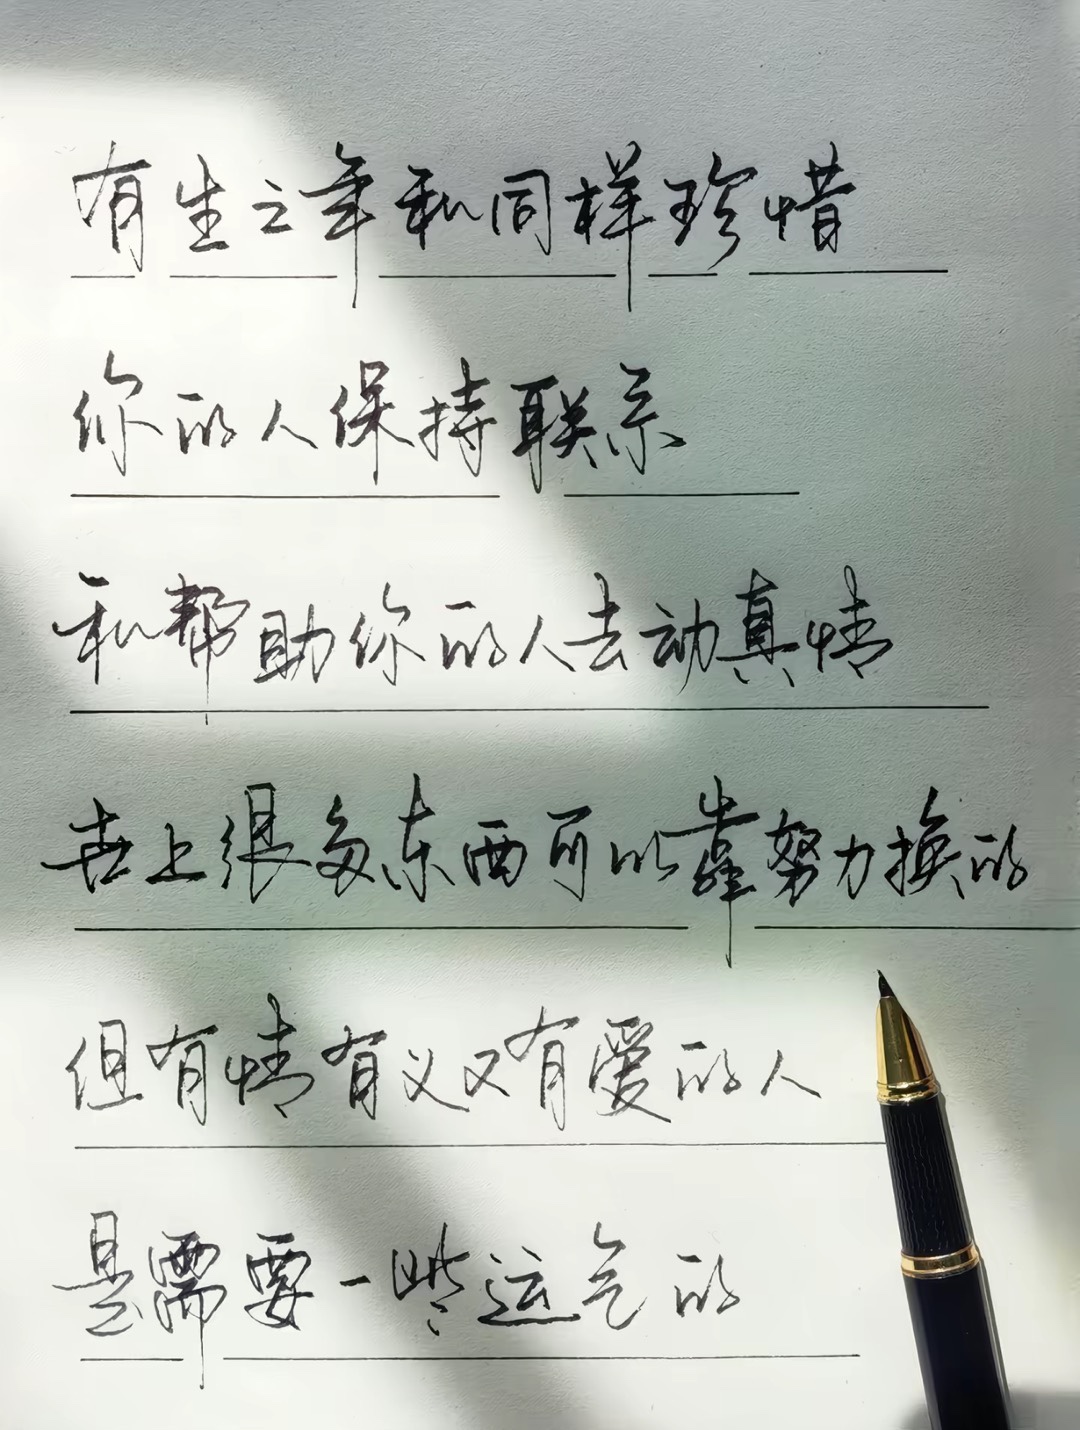 有生之年和同样珍惜
你的人保持联系
和帮助你的人去动真情
世上很多东西可以靠努力换的
但有情有义又有爱的人
是需要一些运气的